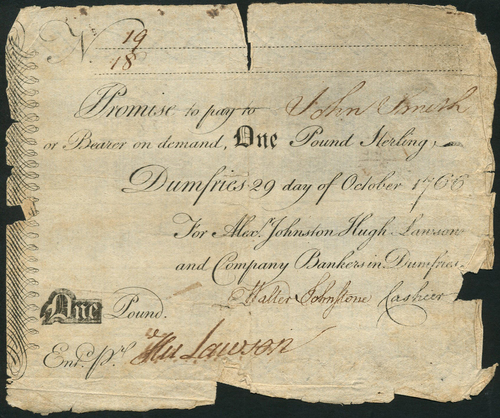 No. 19
18
Promise to pay to John Smith
or Bearer on demand, One Pound Sterling,
Dumfries 29 day of October 1766
For Alexr. Johnston Hugh Lawson
and Company Bankers in Dumfries.
Walter Johnstone Casheer
One Pound.
Entd. pr. Hu Lawson